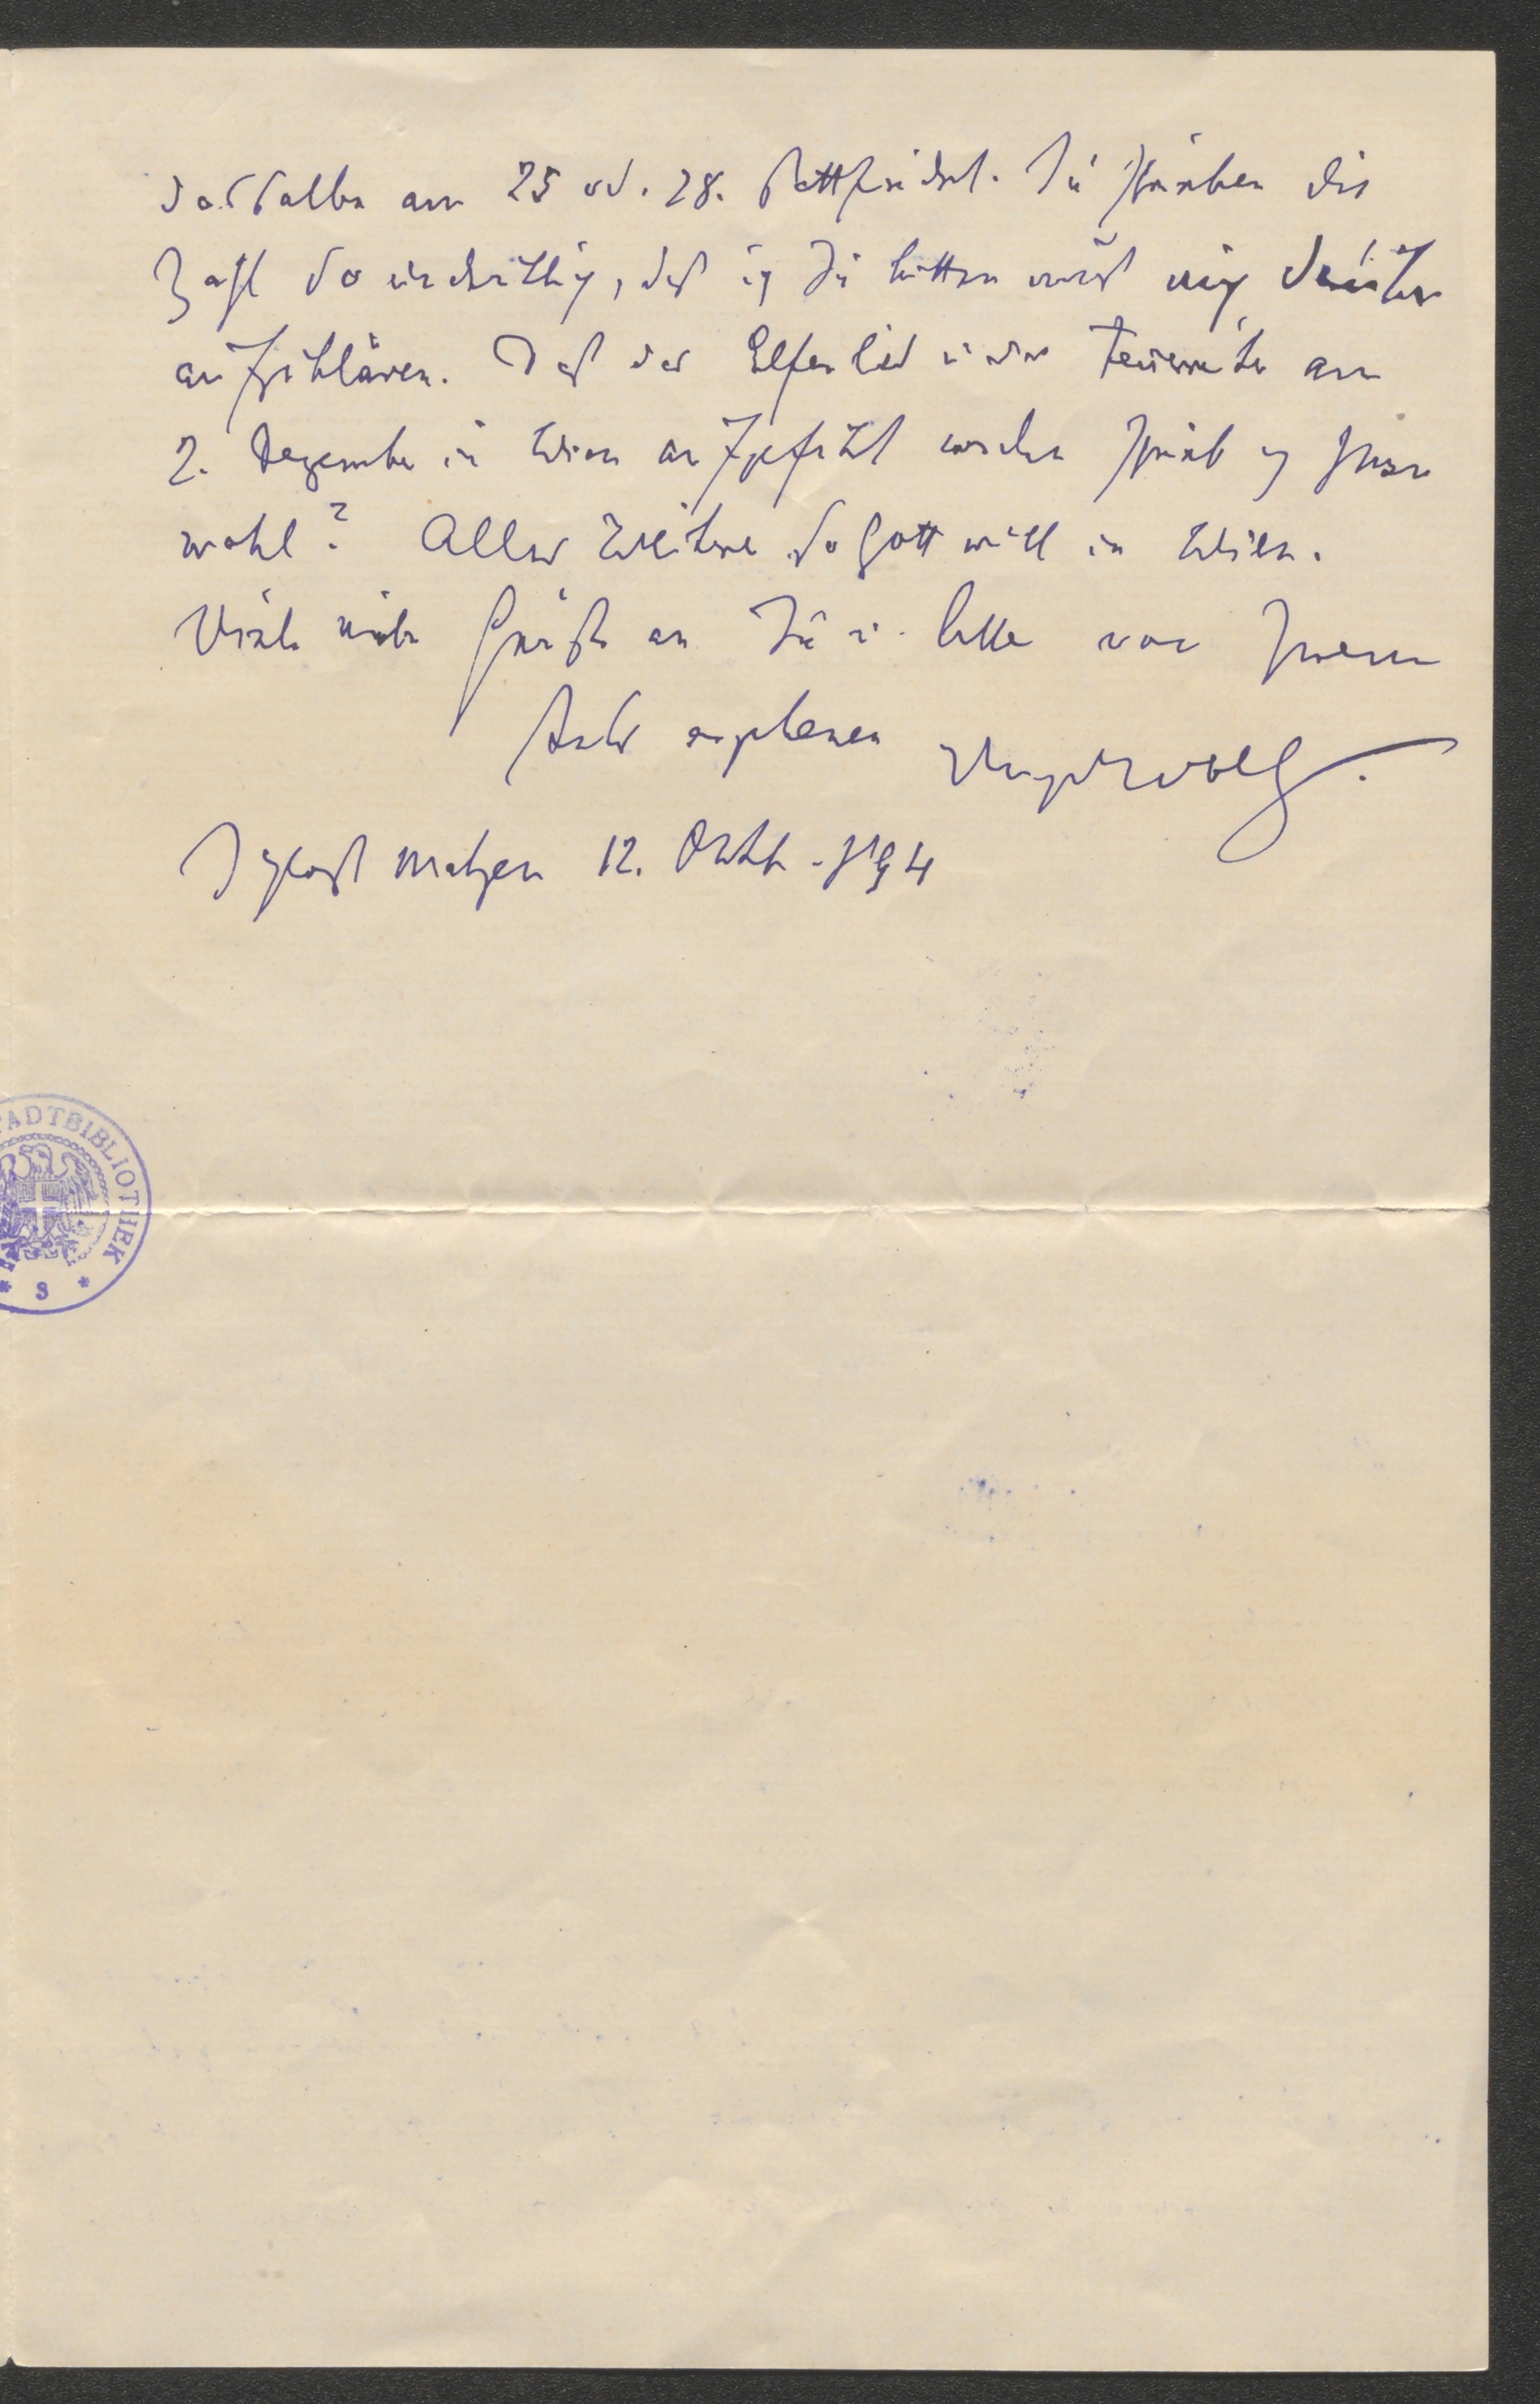 dasselbe am 25 od. 28. stattfindet. Sie schreiben die
Zahl so undeutlich, daß ich Sie bitten muß mich darüber
aufzuklären. Daß das Elfenlied u. der Feuerreiter am
2. Dezember in Wien aufgeführt werden schrieb ich Ihnen
wohl? Alles Weitere so Gott will in Wien.
Viele liebe Grüße an Sie u. bitte von Ihrem
stets ergebenen Hugo Wolf.
Schloß Matzen 12. Oktb. 1894
STADTBIBLIOTHEK
* 3 *